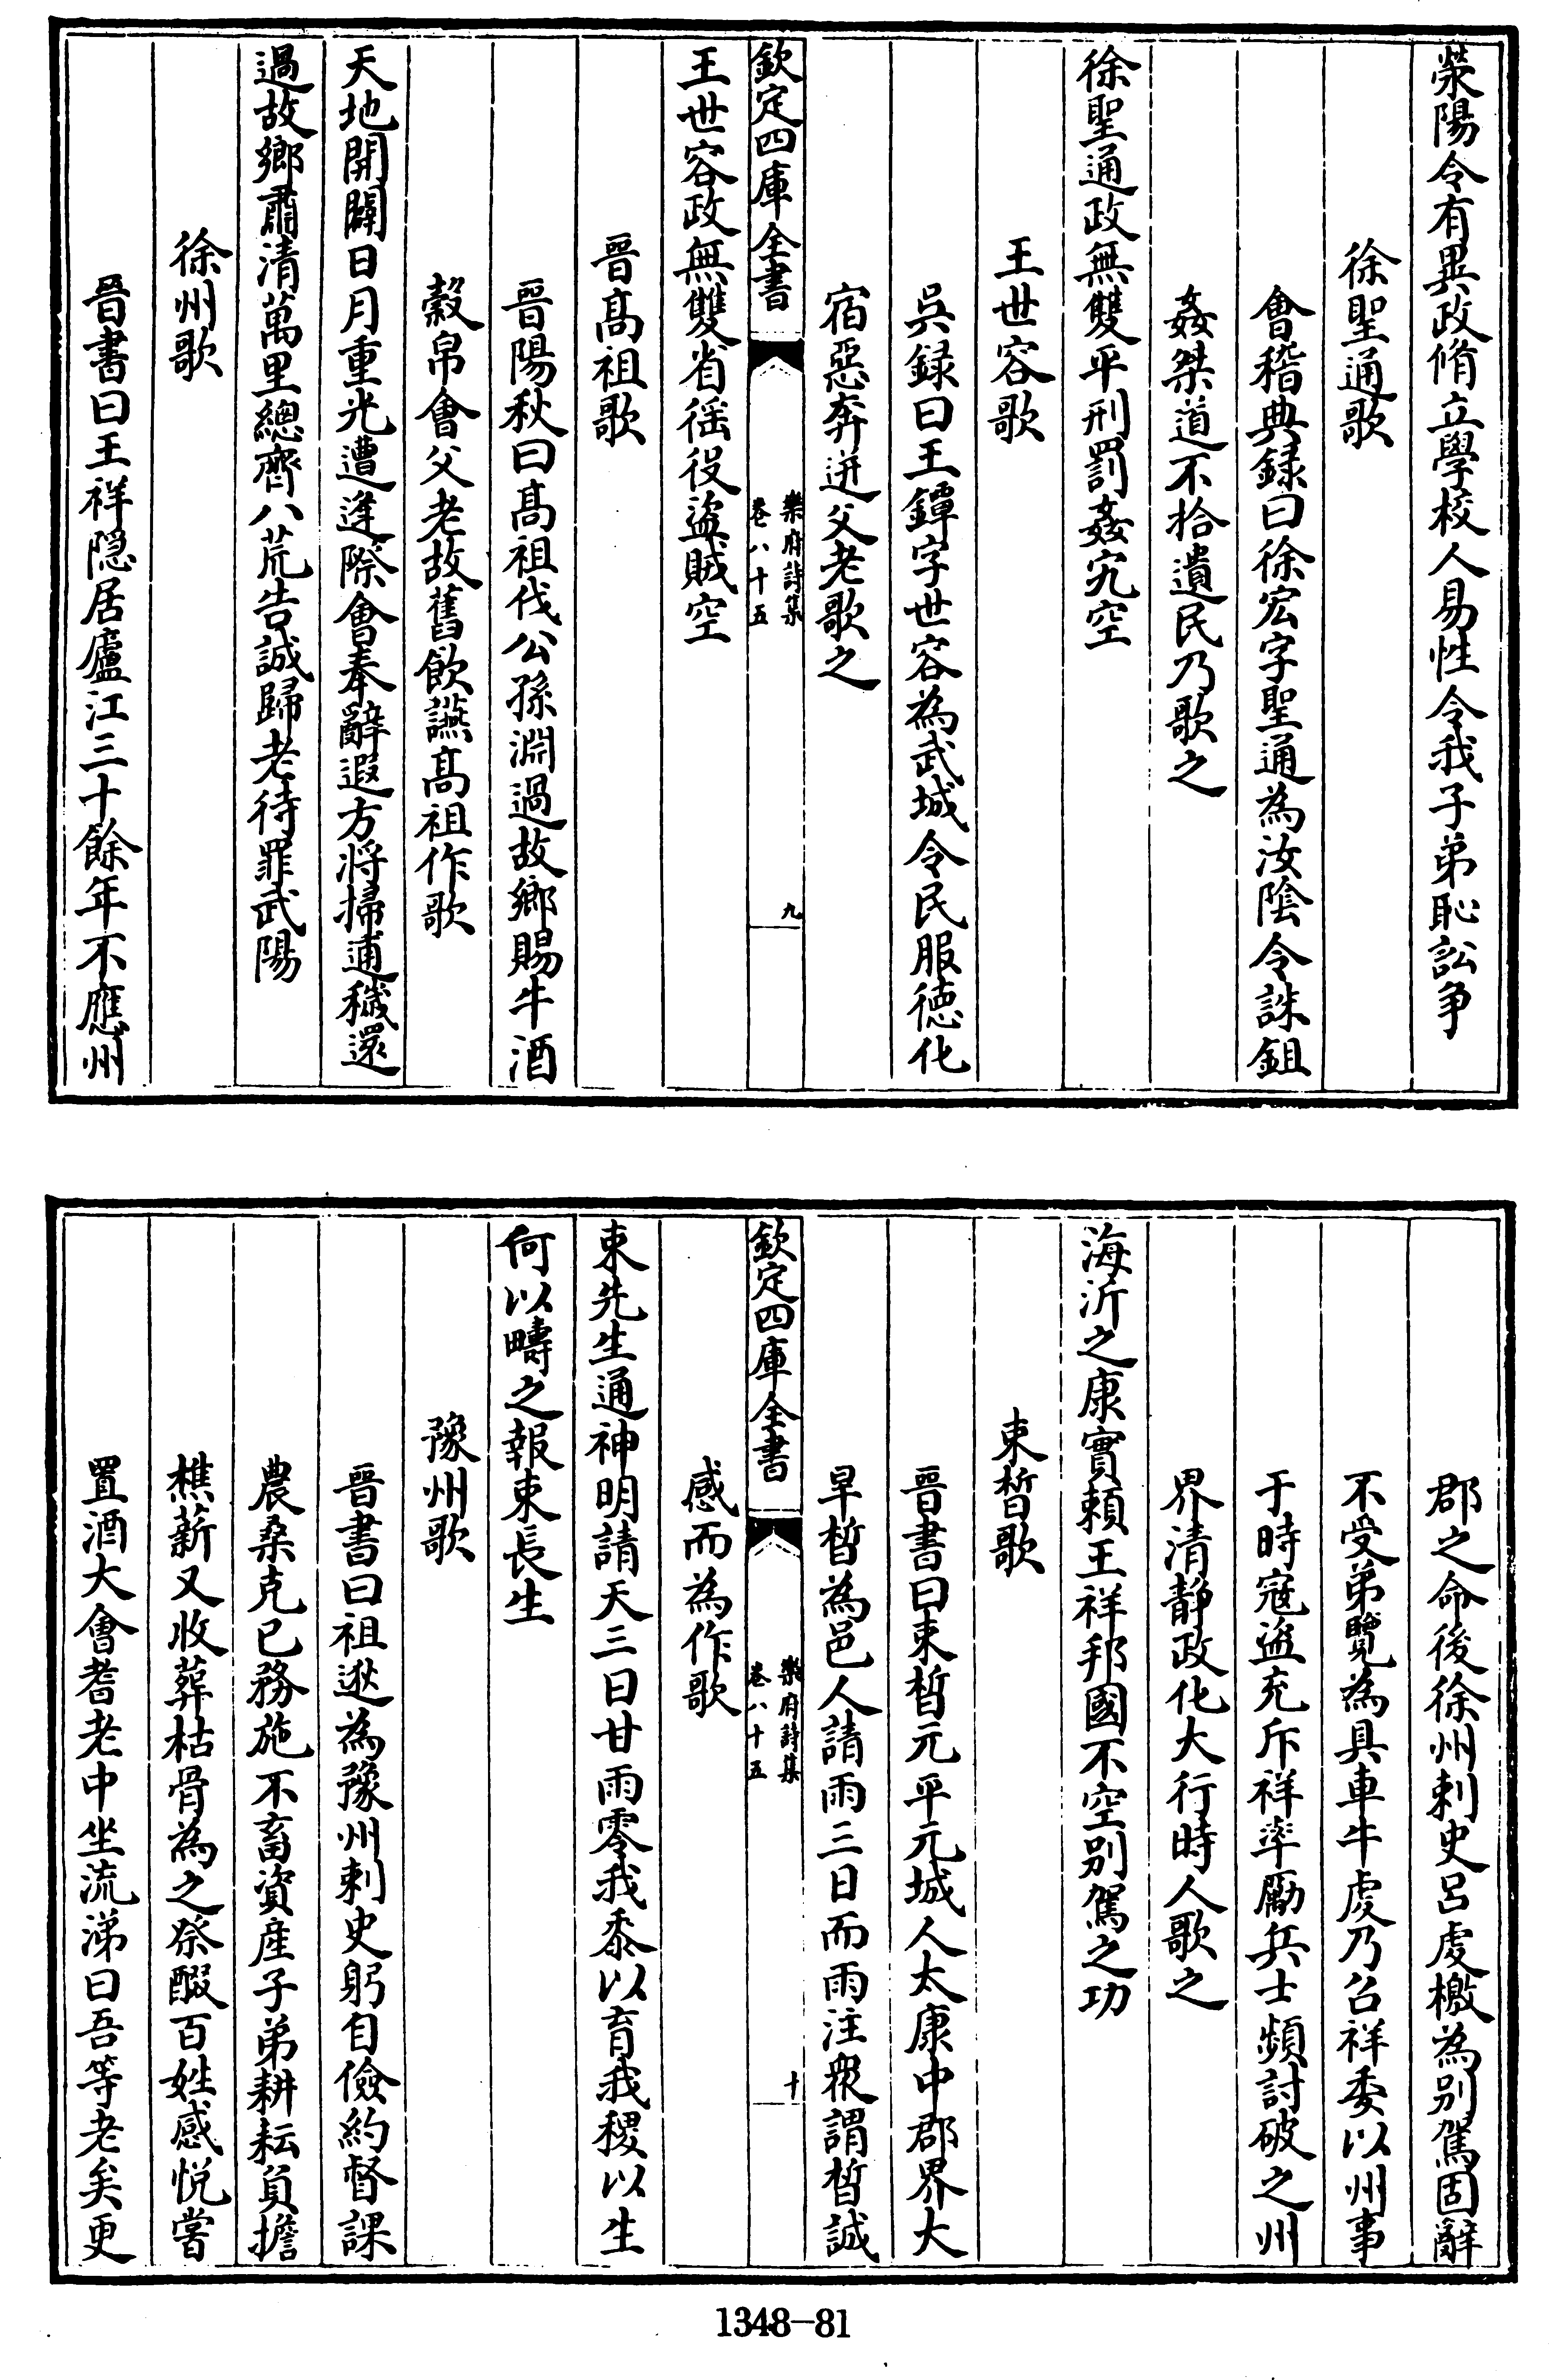 滎陽令有異政脩立學校人易性令我子弟恥訟爭
徐聖通歌
會稽典録曰徐宏字聖通為汝隂令誅鉏
姦桀道不拾遺民乃歌之
徐聖通政無雙平刑罰姦宄空
王世容歌
吳録曰王鐔字世容為武城令民服徳化
宿惡奔迸父老歌之
欽定四庫全書
樂府詩集
卷八十五
九
王世容政無雙省徭役盜賊空
晉髙祖歌
晉陽秋曰髙祖伐公孫淵過故鄉賜牛酒
穀帛會父老故舊飲讌髙祖作歌
天地開闢日月重光遭逢際會奉辭遐方将掃逋穢還
過故鄉肅清萬里總齊八荒告誠歸老待罪武陽
徐州歌
晉書曰王祥隠居廬江三十餘年不應州
郡之命後徐州刺史呂虔檄為别駕固辭
不受弟覽為具車牛虔乃召祥委以州事
于時寇盜充斥祥率勵兵士頻討破之州
界清靜政化大行時人歌之
海沂之康實頼王祥邦國不空别駕之功
束晳歌
晉書曰束晳元平元城人太康中郡界大
旱晳為邑人請雨三日而雨注衆謂晳誠
欽定四庫全書
樂府詩集
卷八十五
十
感而為作歌
束先生通神明請天三日甘雨零我黍以育我稷以生
何以疇之報束長生
豫州歌
晉書曰祖逖為豫州刺史躬自儉約督課
農桑克已務施不畜資産子弟耕耘負擔
樵薪又收葬枯骨為之祭醊百姓感悅嘗
置酒大會耆老中坐流涕曰吾等老矣更
1348-81